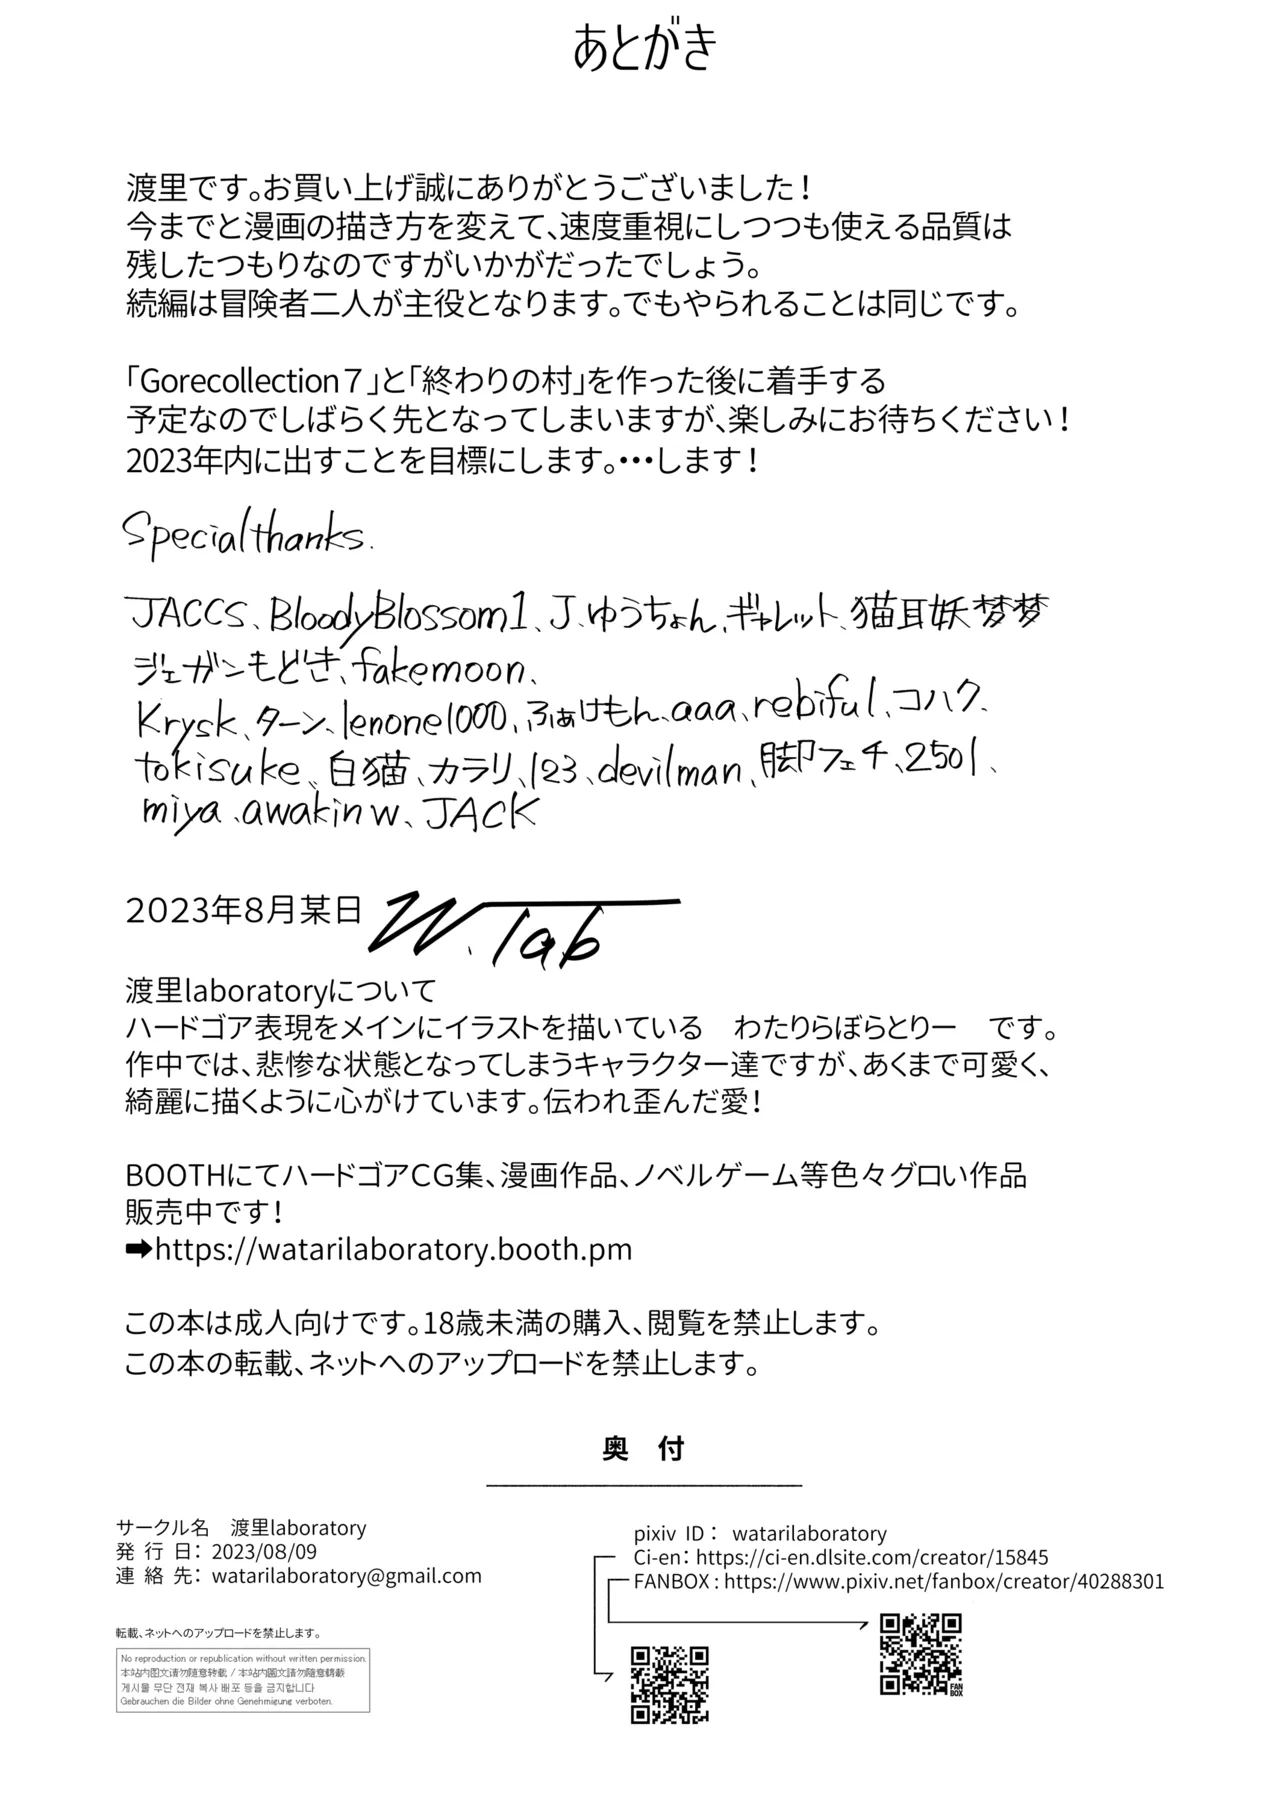 あとがき
渡里です。お買い上げ誠にありがとうございました！
今までと漫画の描き方を変えて、速度重視にしつつも使える品質は
残したつもりなのですがいかがだったでしょう。
続編は冒険者二人が主役となります。でもやられることは同じです。
「Gorecollection７」と「終わりの村」を作った後に着手する
予定なのでしばらく先となってしまいますが、楽しみにお待ちください！
2023年内に出すことを目標にします。・・・します！
Specialthanks.
JACCS、BloodyBlossom1、J、ゆうちょん、ギャレット、猫耳妖梦梦
ジェガンもどき、fakemoon、
Krysk、ターン、lenone1000、ふぁけもん、aaa、rebiful、コハク、
tokisuke、白猫、カラリ、123、devilman、脚フェチ、2501、
miya、awakinw、JACK
2023年8月某日 W.lab
渡里laboratoryについて
ハードゴア表現をメインにイラストを描いている　わたりらぼらとりー　です。
作中では、悲惨な状態となってしまうキャラクター達ですが、あくまで可愛く、
綺麗に描くように心がけています。伝われ歪んだ愛！
BOOTHにてハードゴアCG集、漫画作品、ノベルゲーム等色々グロい作品
販売中です！
➡https://watarilaboratory.booth.pm
この本は成人向けです。18歳未満の購入、閲覧を禁止します。
この本の転載、ネットへのアップロードを禁止します。
奥　付
サークル名　渡里laboratory
発 行 日： 2023/08/09
連 絡 先： watarilaboratory@gmail.com
pixiv ID： watarilaboratory
Ci-en：https://ci-en.dlsite.com/creator/15845
FANBOX：https://www.pixiv.net/fanbox/creator/40288301
転載、ネットへのアップロードを禁止します。
No reproduction or republication without written permission.
本站内图文请勿随意转载 / 本站内圖文請勿隨意轉載
게시물 무단 전재 복사 배포 등을 금지합니다
Gebrauchen die Bilder ohne Genehmigung verboten.
FAN
BOX